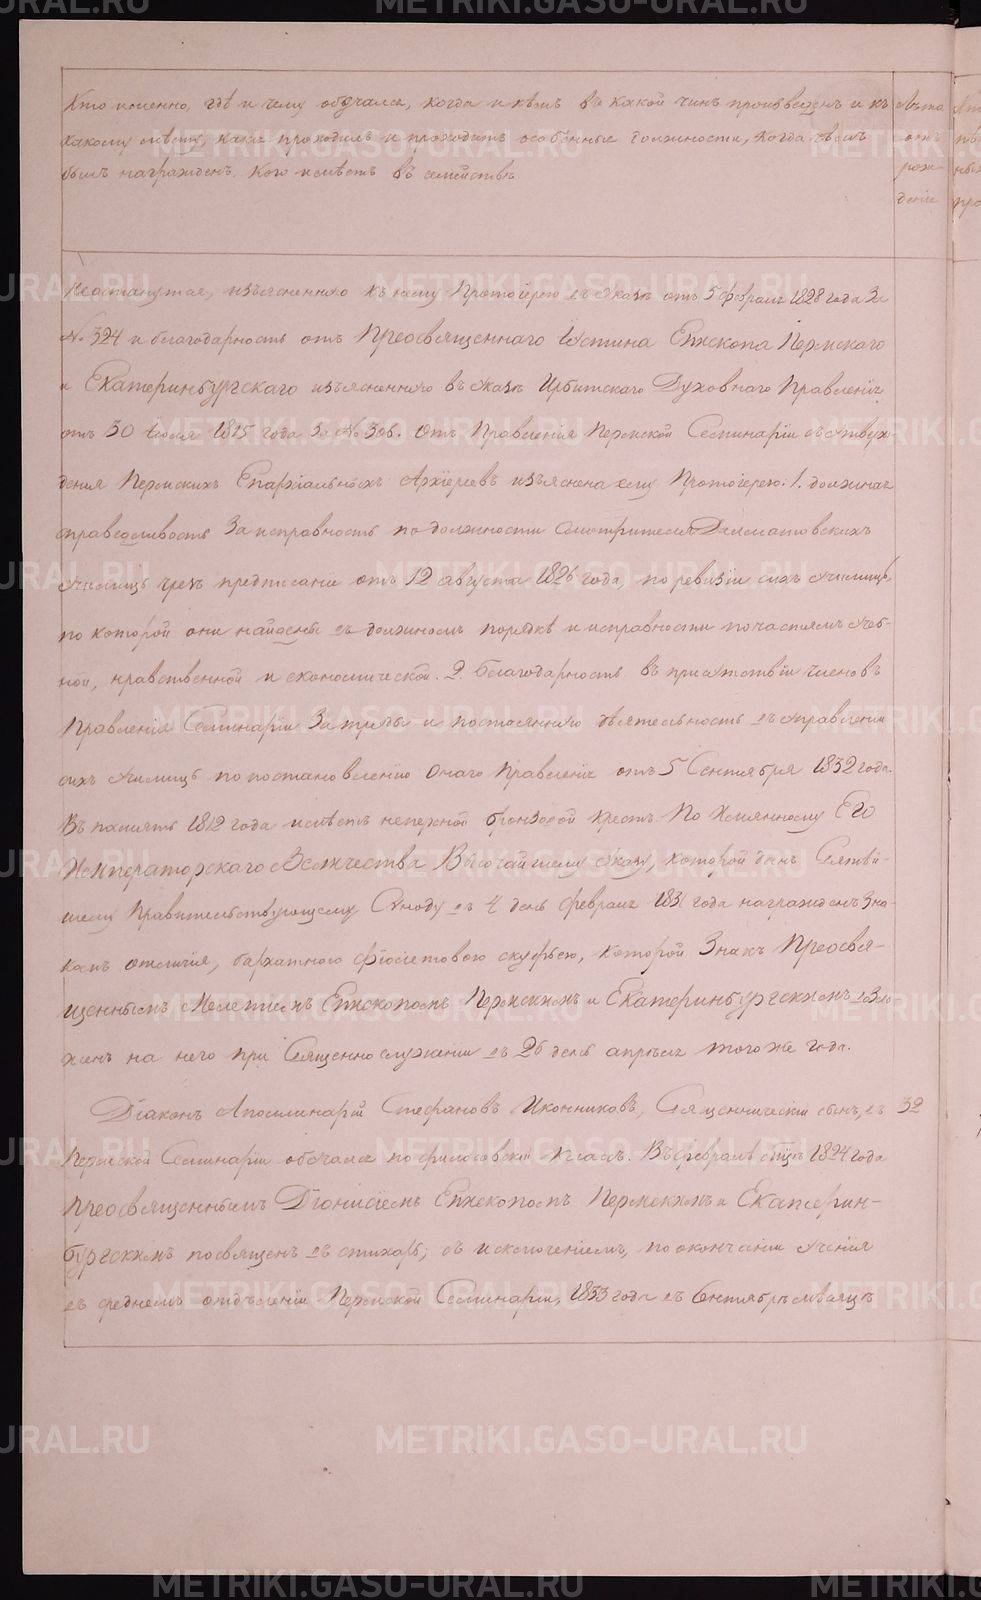 Кто именно, гдѣ и чему обучался, когда и кѣмъ въ какой чинъ произведенъ и къ
какому мѣсту, какія проходилъ и проходитъ особенныя должности, когда чѣмъ
былъ награжденъ. Кого имѣетъ въ семействѣ
Лѣта
отъ
рож-
денія
изъясненную къ нему Протоіерею въ Указѣ отъ 5 февраля 1828 года за
№ 324 и благодарность отъ Преосвященнаго Іустина Епископа Пермскаго
и Екатеринбургскаго изъясненную въ Указѣ Ирбитскаго Духовнаго Правленія
отъ 30 Іюля 1815 года за № 306. Отъ Правленія Пермской Семинаріи съ утверж-
денія Пермскихъ Епархіальныхъ Архіереевъ изъяснена ему Протоіерею: 1. должная
справедливость За исправность по должности смотрителя Далматовскихъ
Училищъ чрезъ предписаніе отъ 12 августа 1826 года, по ревизіи сихъ Училищъ,
по которой они найдены въ должномъ порядкѣ и исправности по частямъ Учеб-
ной, нравственной и экономической. 2. благодарность въ присутствіи членовъ
Правленія Семинаріи За труды и постоянную дѣятельность въ управленіи
сихъ Училищъ по постановленію онаго Правленія отъ 5 Сентября 1832 года.
Въ память 1812 года имѣетъ наперсной бронзовой крестъ. По Имянному Его
Императорскаго Величества Высочайшему Указу, которой данъ Святѣй-
шему Правительствующему Синоду въ 4 день февраля 1831 года награжденъ Зна-
комъ отличія, бархатною фіолетовою скуфьею, которой Знакъ Преосвя-
щеннымъ Мелетіемъ Епископомъ Пермскимъ и Екатеринбургскимъ возло-
женъ на него при Священнослуженіи въ 26 день апрѣля того же года.
Діаконъ Аполлинарій Стефановъ Иконниковъ, Священническій сынъ, въ 32
Пермской Семинаріи обучался по философскій классъ. Въ февралѣ мѣсяцѣ 1824 года
Преосвященнымъ Діонисіемъ Епископомъ Пермскимъ и Екатерин-
бургскимъ посвященъ въ стихарь; съ исключеніемъ, по окончаніи Ученія
въ среднемъ отдѣленіи Пермской Семинаріи, 1833 года въ Сентябрѣ мѣсяцѣ
METRIKI.GASO-URAL.RU